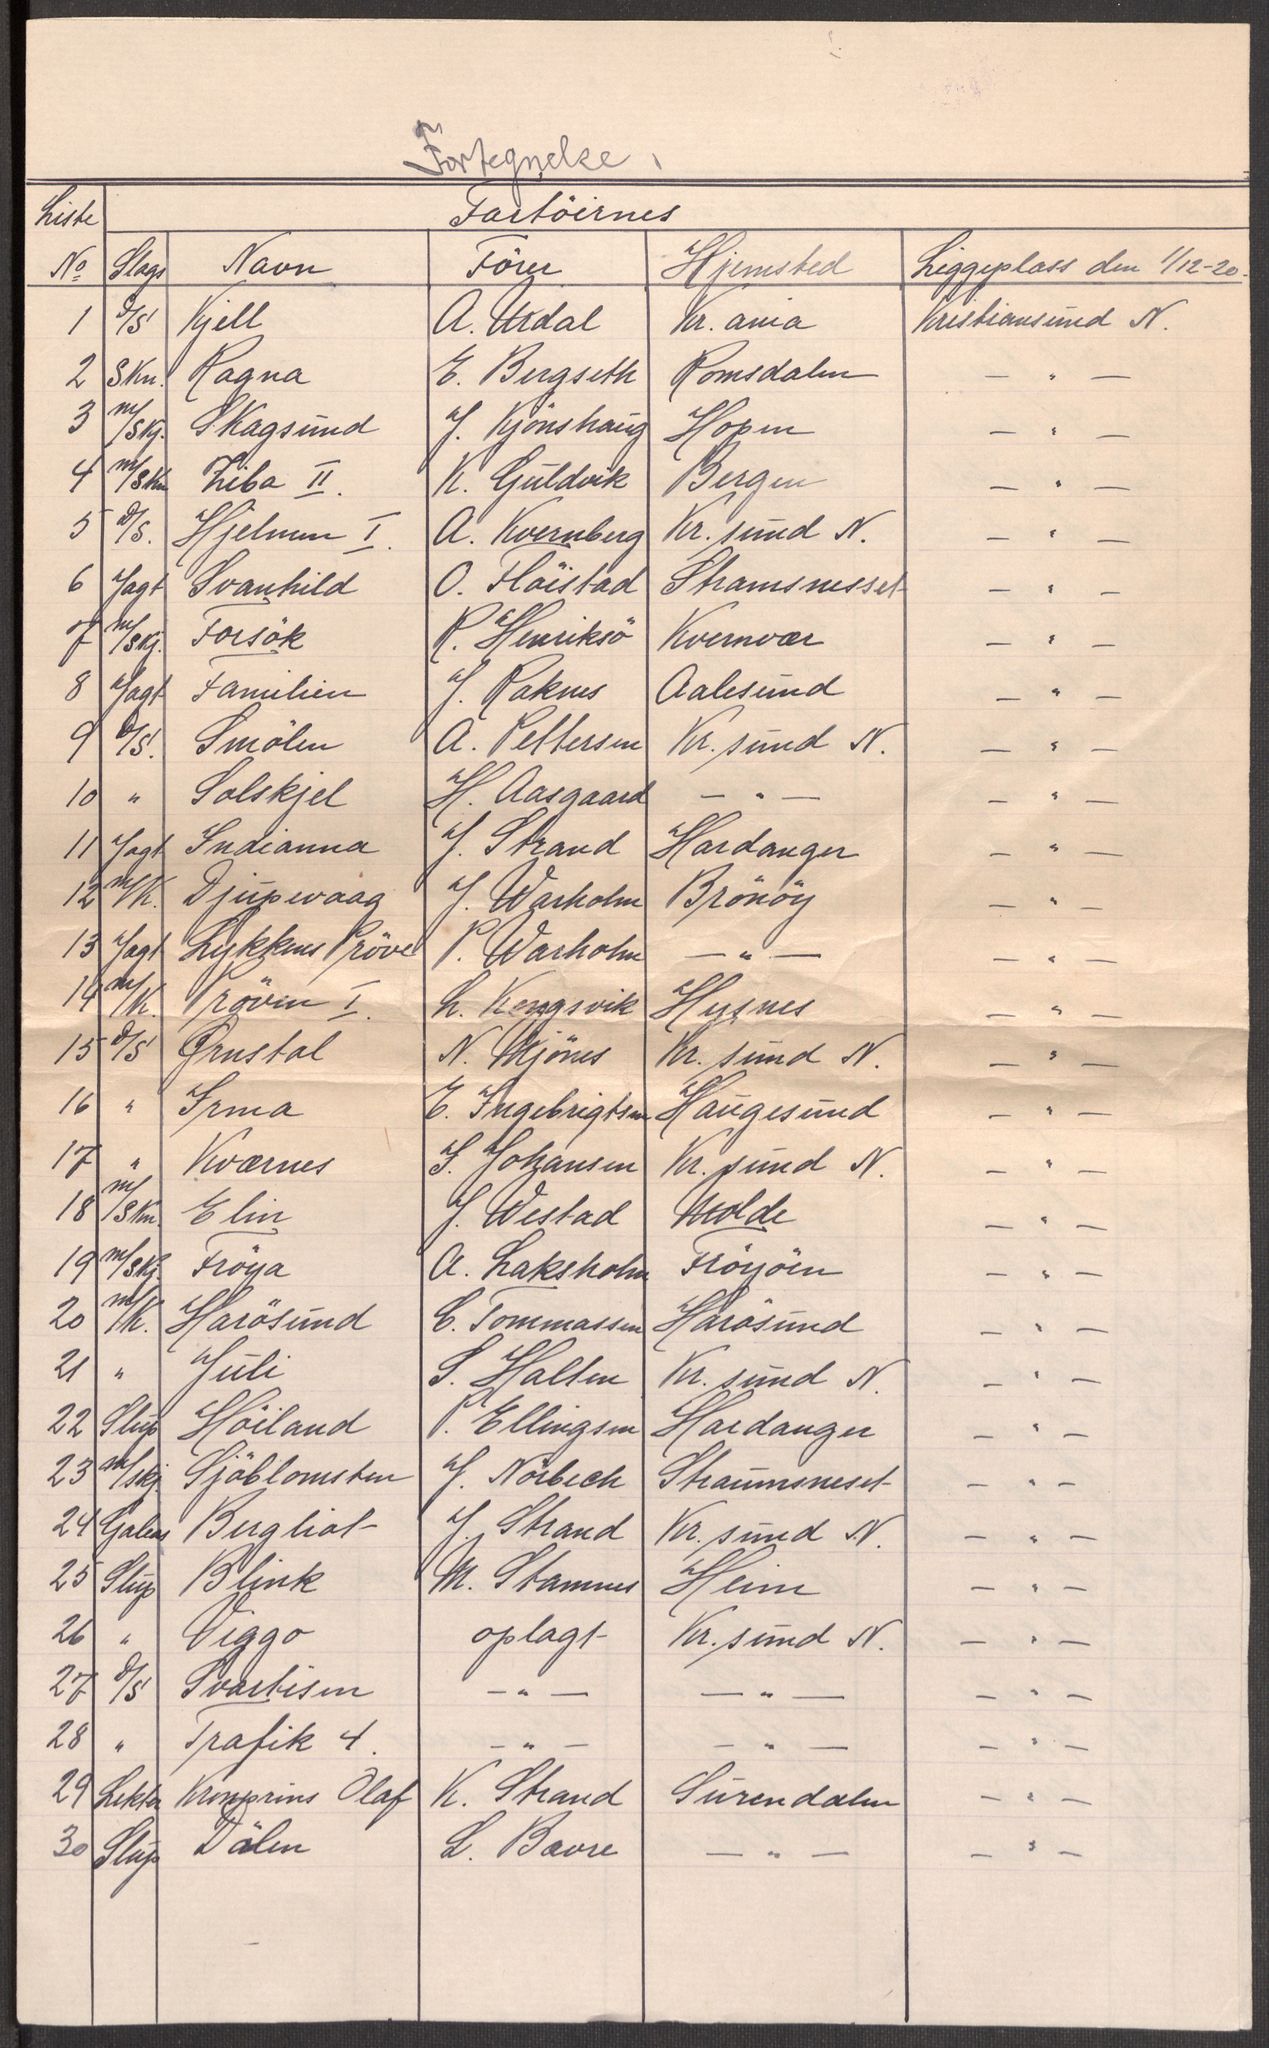 Fortegnelse.
Liste Fartöiernes
No Slags Navn Förer Hjemsted Liggeplass den 1/12-20.
1 D/S Kjell A. Urdal Kr.ania Kristiansund N.
2 Skn. Ragna E. Bergseth Romsdalen — " —
3 m/Skj. Skagsund J. Kjönshaug Hopen — " —
4 m/Skn Ziba II. K. Guldvik Bergen — " —
5 D/S. Hjelmen I. A. Kvernberg Kr.sund N. — " —
6 Jagt Svanhild O. Flöistad Stramsnesset — " —
7 m/Skj. Forsök R. Henriksö Kvernvær — " —
8 Jagt Familien J. Raknes Aalesund — " —
9 D/S. Smölen A. Pettersen Kr.sund N. — " —
10 " Solskjel H. Aasgaard — " — — " —
11 Jagt Indianna J. Strand Hardanger — " —
12 m/K. Djupevaag J. Warholm Brönöy — " —
13 Jagt Lykkens Pröve P. Warholm — " — — " —
14 m/K. Pröven I. L. Kongsvik Husnes — " —
15 D/S Ørnstal N. Mjönes Kr.sund N. — " —
16 " Irma E. Ingebrigtsen Haugesund — " —
17 " Kværnes S. Johansen Kr.sund N. — " —
18 m/Skn. Elin J. Westad Molde — " —
19 m/Skj. Fröya A. Laksholm Fröyöen — " —
20 m/K. Harösund C. Tommassen Harösund — " —
21 " Juli S. Halten Kr.sund N. — " —
22 Slup Höiland P. Ellingsen Hardanger — " —
23 m/skj Sjöblomsten J. Nörbech Straumsneset — " —
24 Galeas Bergliot J. Strand Kr.sund N. — " —
25 Slup Blink M. Stamnes Heim — " —
26 " Viggo oplagt Kr.sund N. — " —
27 D/S Svartisen — " — — " — — " —
28 " Trafik 4. — " — — " — — " —
29 Lekter Kronprins Olaf K. Strand Surendalen — " —
30 Slup Dålen L. Bævre — " — — " —